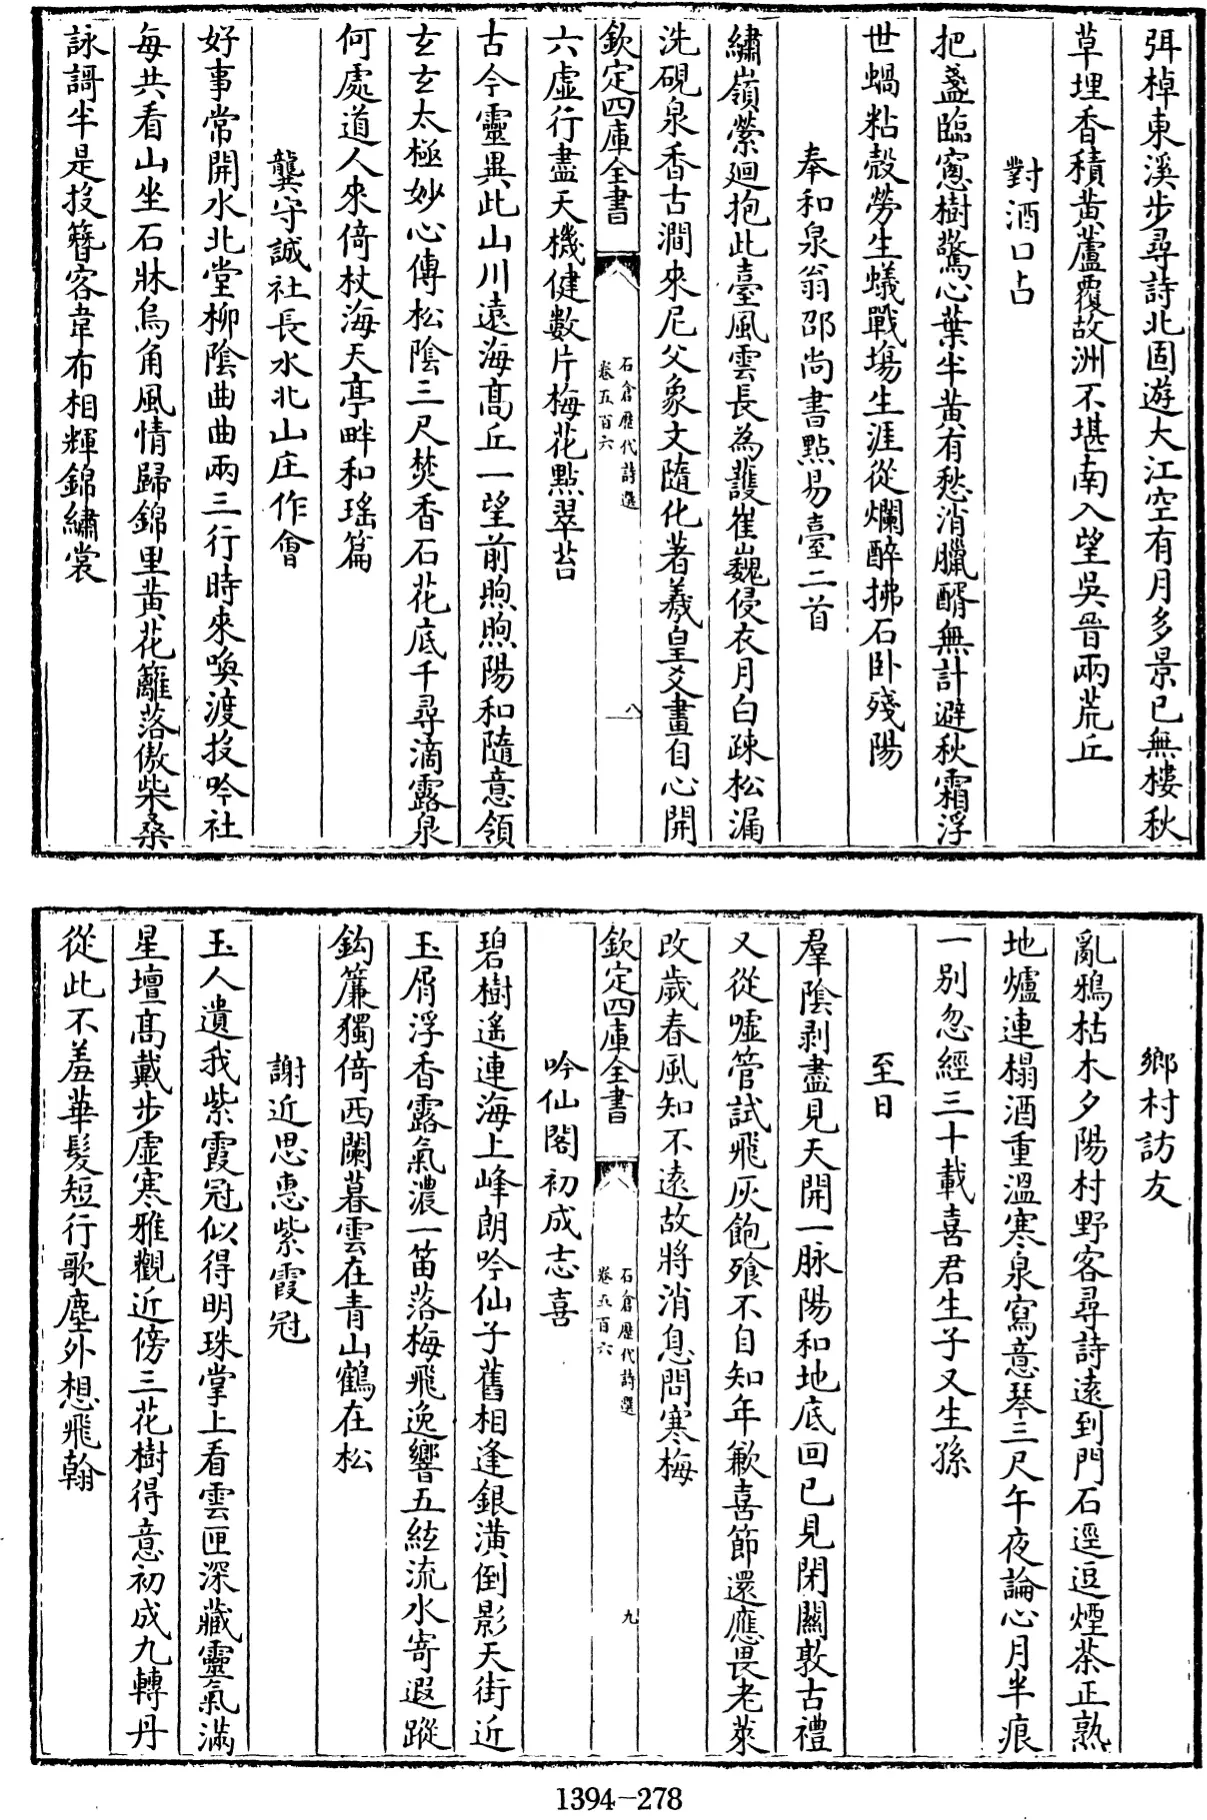 弭棹東溪步尋詩北固遊大江空有月多景已無樓秋
草埋香積黃蘆覆故洲不堪南入望吳晉兩荒丘
對酒口占
把盞臨窻樹驚心葉半黃有愁消臘醑無計避秋霜浮
世蝸粘殼勞生蟻戰塲生涯從爛醉拂石卧殘陽
奉和泉翁邵尚書點易臺二首
繡嶺縈迴抱此臺風雲長為護崔巍侵衣月白疎松漏
洗硯泉香古澗來尼父象文隨化著羲皇爻畫自心開
欽定四庫全書
石倉歷代詩選
卷五百六
八
六虛行盡天機健數片梅花點翠苔
古今靈異此山川遠海髙丘一望前煦煦陽和隨意領
玄玄太極妙心傳松陰三尺焚香石花底千尋滴露泉
何處道人來倚杖海天亭畔和瑤篇
龔守誠社長水北山庄作會
好事常開水北堂柳陰曲曲兩三行時來喚渡投吟社
每共看山坐石牀烏角風情歸錦里黃花籬落傲柴桑
詠謌半是投簪客韋布相輝錦繡裳
鄉村訪友
亂鴉枯木夕陽村野客尋詩遠到門石逕逗煙茶正熟
地爐連榻酒重溫寒泉寫意琴三尺午夜論心月半痕
一别忽經三十載喜君生子又生孫
至日
羣陰剥盡見天開一脉陽和地底回已見閉關敦古禮
又從噓管試飛灰飽飱不自知年歉喜節還應畏老萊
改歲春風知不遠故將消息問寒梅
欽定四庫全書
石倉歷代詩選
卷五百六
九
吟仙閣初成志喜
碧樹遙連海上峰朗吟仙子舊相逢銀潢倒影天街近
玉屑浮香露氣濃一笛落梅飛逸響五絃流水寄遐蹤
鈎簾獨倚西闌暮雲在青山鶴在松
謝近思惠紫霞冠
玉人遺我紫霞冠似得明珠掌上看雲匣深藏靈氣滿
星壇髙戴步虛寒雅觀近傍三花樹得意初成九轉丹
從此不羞華髮短行歌塵外想飛翰
1394-278